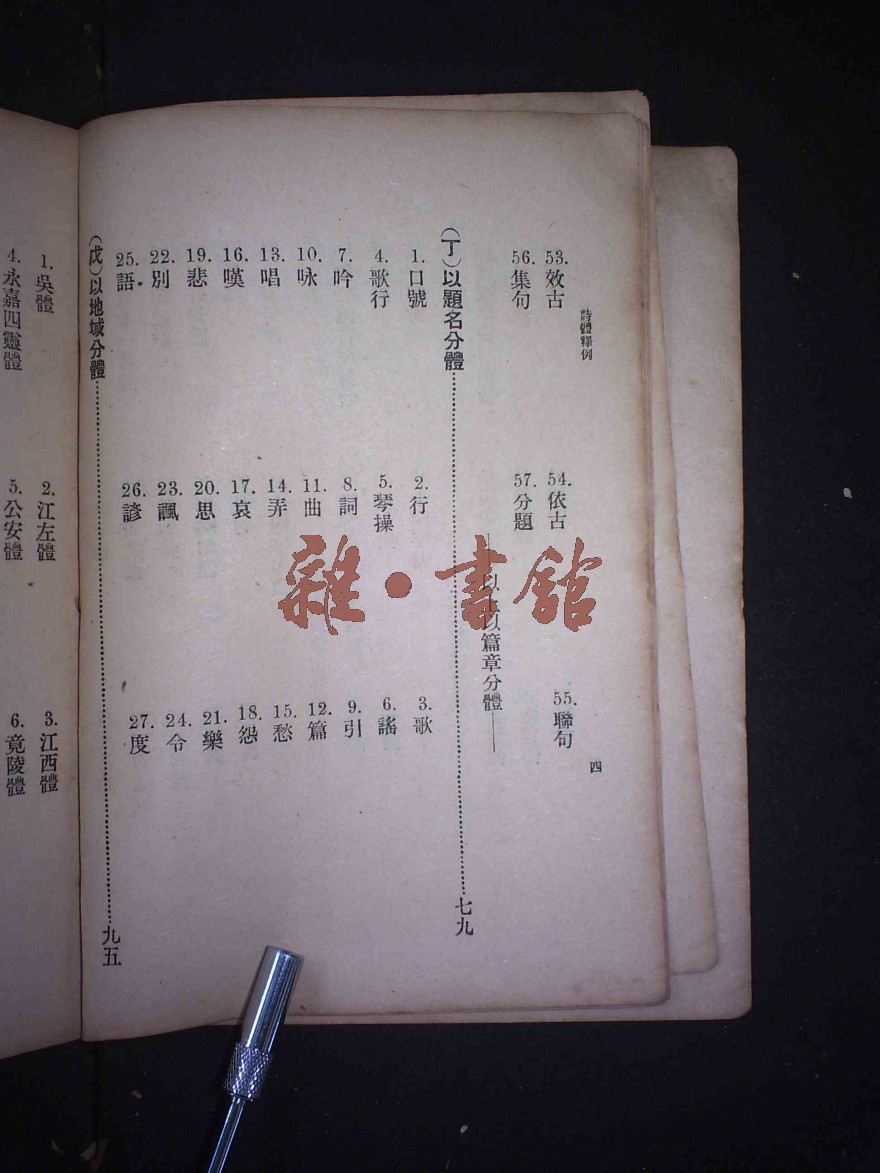 詩體釋例
四
53. 效古
54. 依古
55. 聯句
56. 集句
57. 分題
——以上以篇章分體——
(丁)以題名分體……七九
1. 口號
2. 行
3. 歌
4. 歌行
5. 琴操
6. 謠
7. 吟
8. 詞
9. 引
10. 咏
11. 曲
12. 篇
13. 唱
14. 弄
15. 愁
16. 嘆
17. 哀
18. 怨
19. 悲
20. 思
21. 樂
22. 別
23. 諷
24. 令
25. 語
26. 諺
27. 度
(戊)以地域分體……九五
1. 吳體
2. 江左體
3. 江西體
4. 永嘉四靈體
5. 公安體
6. 竟陵體
雜·書館